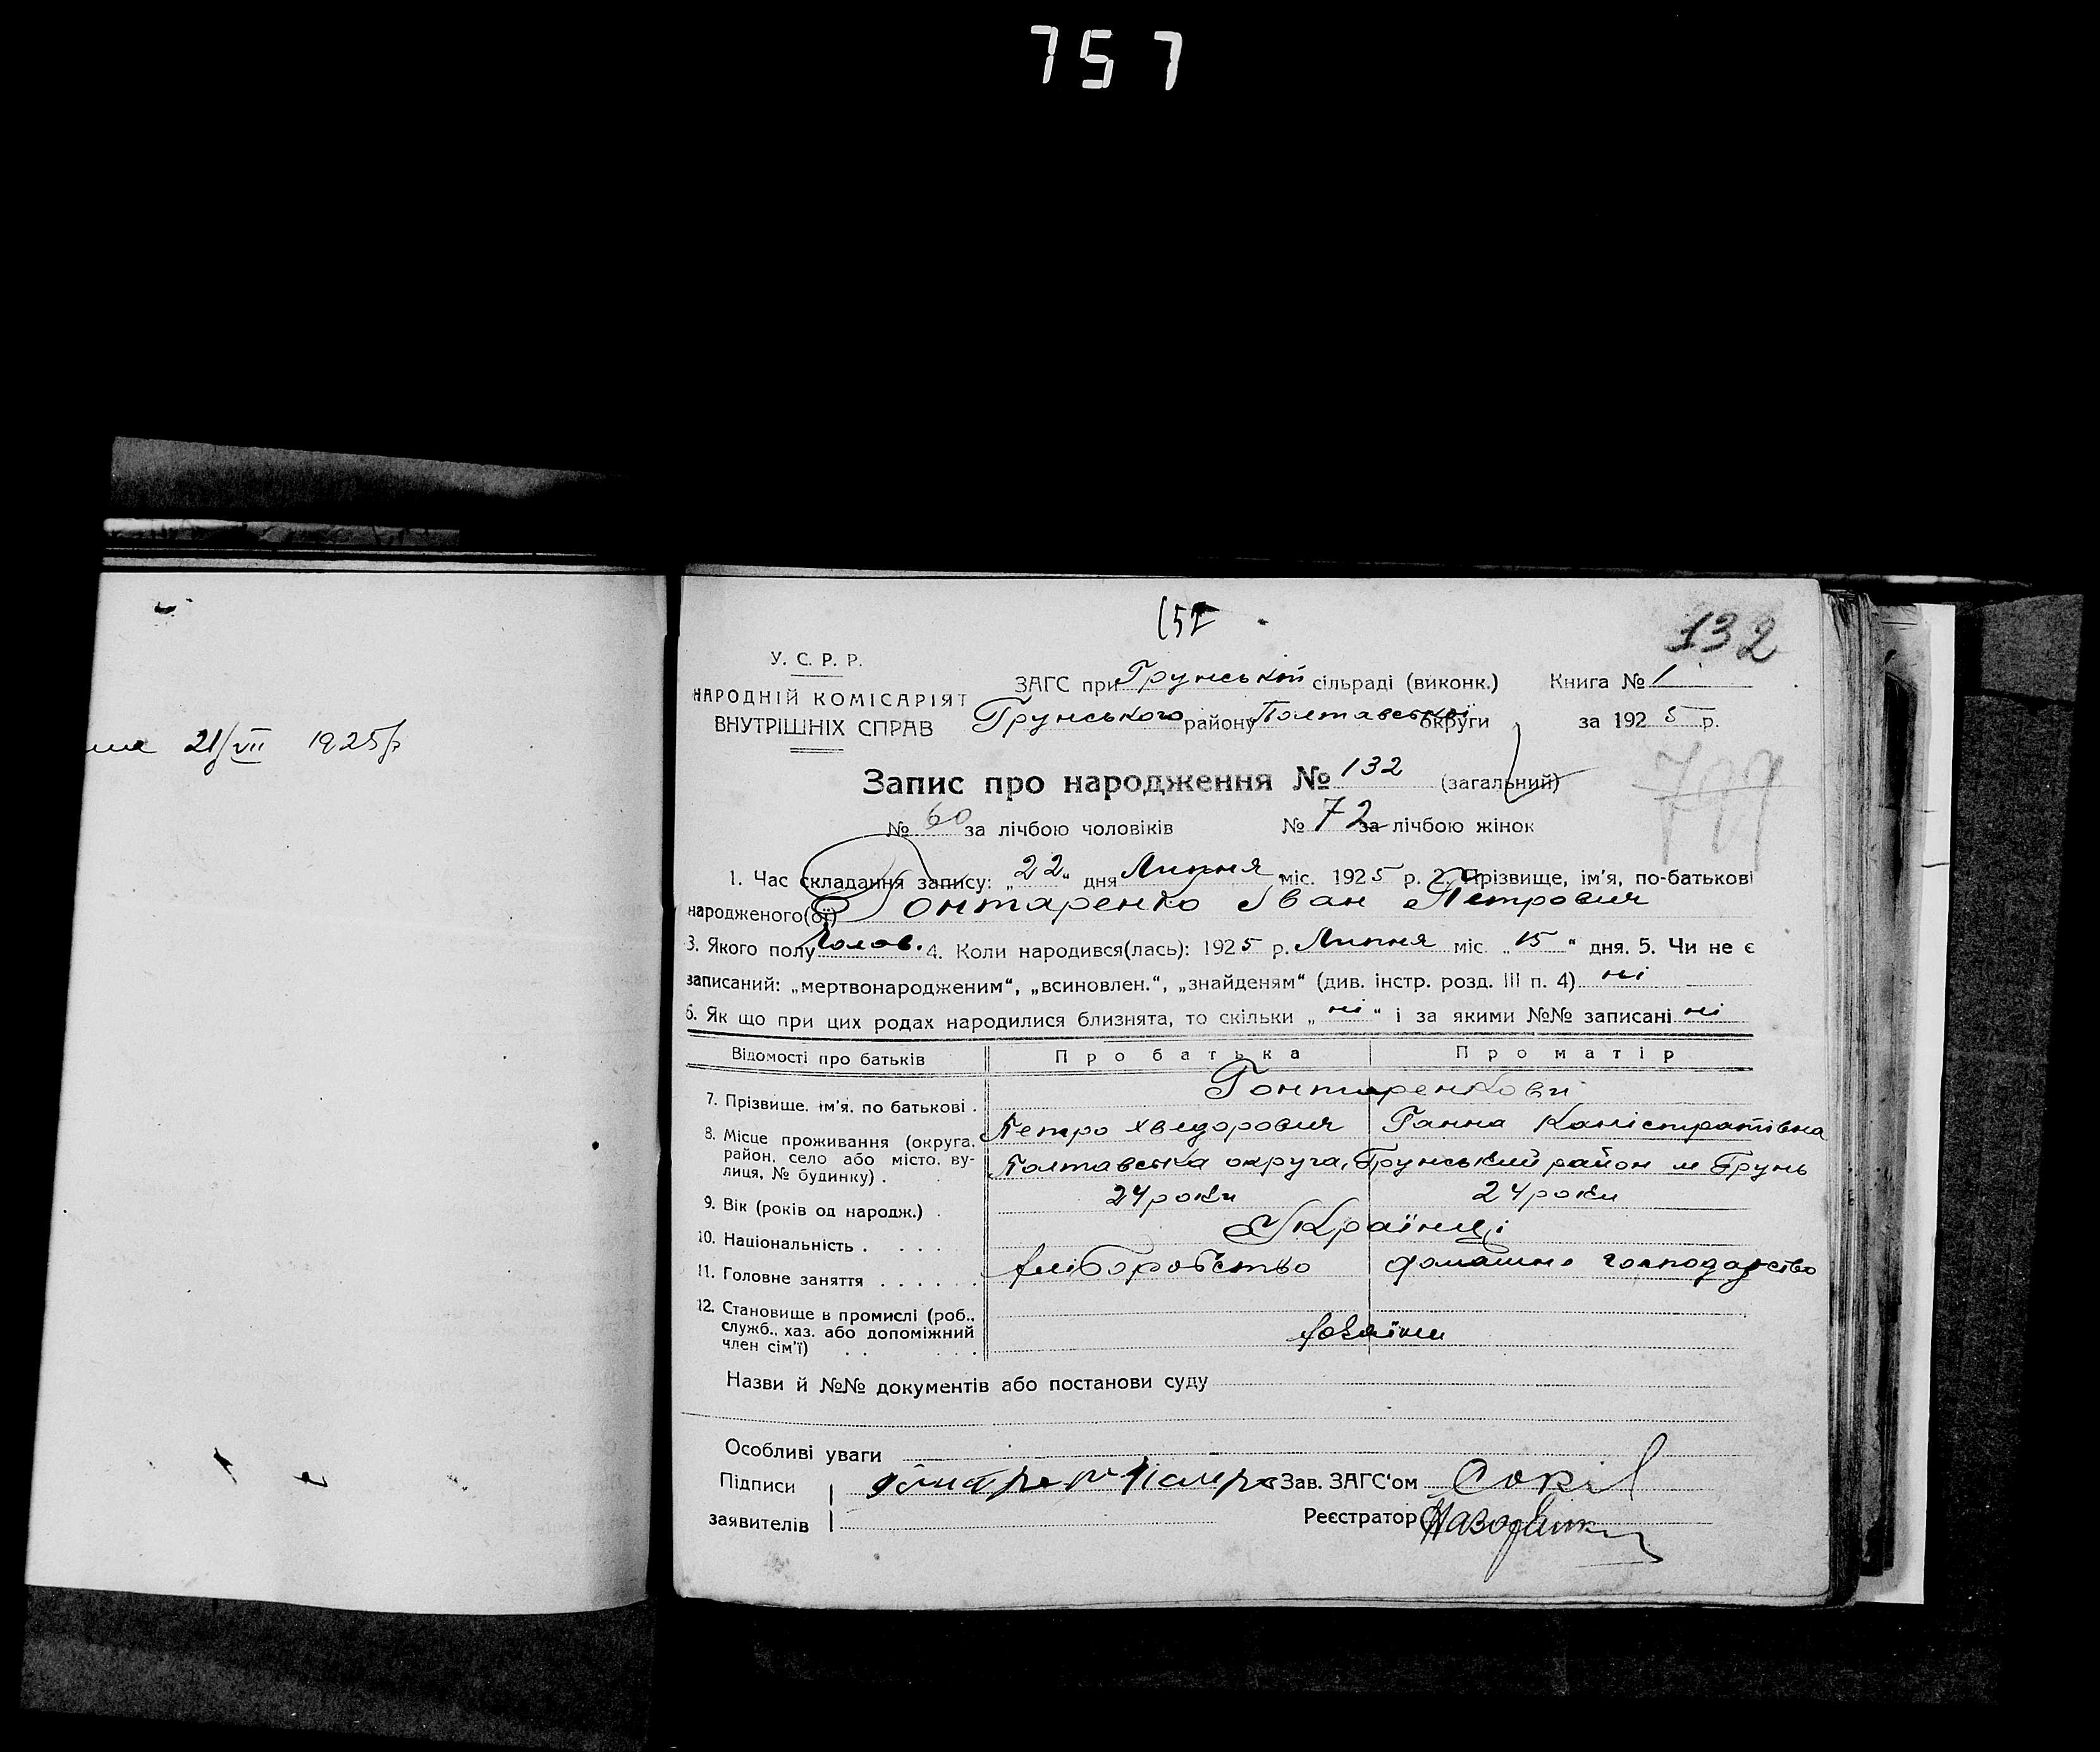 757
132
У. С. Р. Р.
НАРОДНІЙ КОМІСАРІЯТ
ВНУТРІШНІХ СПРАВ
ЗАГС при Грунській сільраді (виконк.) Книга № 1
Грунського району Полтавської округи за 1925 р.
21/VII 1925 р
Запис про народження № 132 (загальний)
799
№ 60 за лічбою чоловіків № 72 за лічбою жінок
1. Час складання запису: „22“ дня Липня міс. 1925 р. 2. Прізвище, ім'я, по-батькові
народженого(ої) Гонтаренко Іван Петрович
3. Якого полу чолов. 4. Коли народився(лась): 1925 р. Липня міс „15“ дня. 5. Чи не є
записаний: „мертвонародженим“, „всиновлен.“, „знайденям“ (див. інстр. розд. III п. 4) ні
6. Як що при цих родах народилися близнята, то скільки „ні“ і за якими №№ записані ні
Відомості про батьків Про батька Про матір
7. Прізвище, ім'я, по батькові . Гонтаренкови
Петро Хведорович Ганна Каністратівна
8. Місце проживання (округа, район, село або місто, ву-
лиця, № будинку) . Полтавська округа, Грунський район м Грунь
9. Вік (років од народж.) . 24 роки 24 роки
10. Національність . . . . . Українці
11. Головне заняття . . . . . . хліборобство домашнє господарство
12. Становище в промислі (роб.,
служб., хаз. або допоміжний
член сім'ї) . . . . . хазяїни
Назви й №№ документів або постанови суду
Особливі уваги
Підписи Зав. ЗАГС'ом Сокіл
заявителів Реєстратор